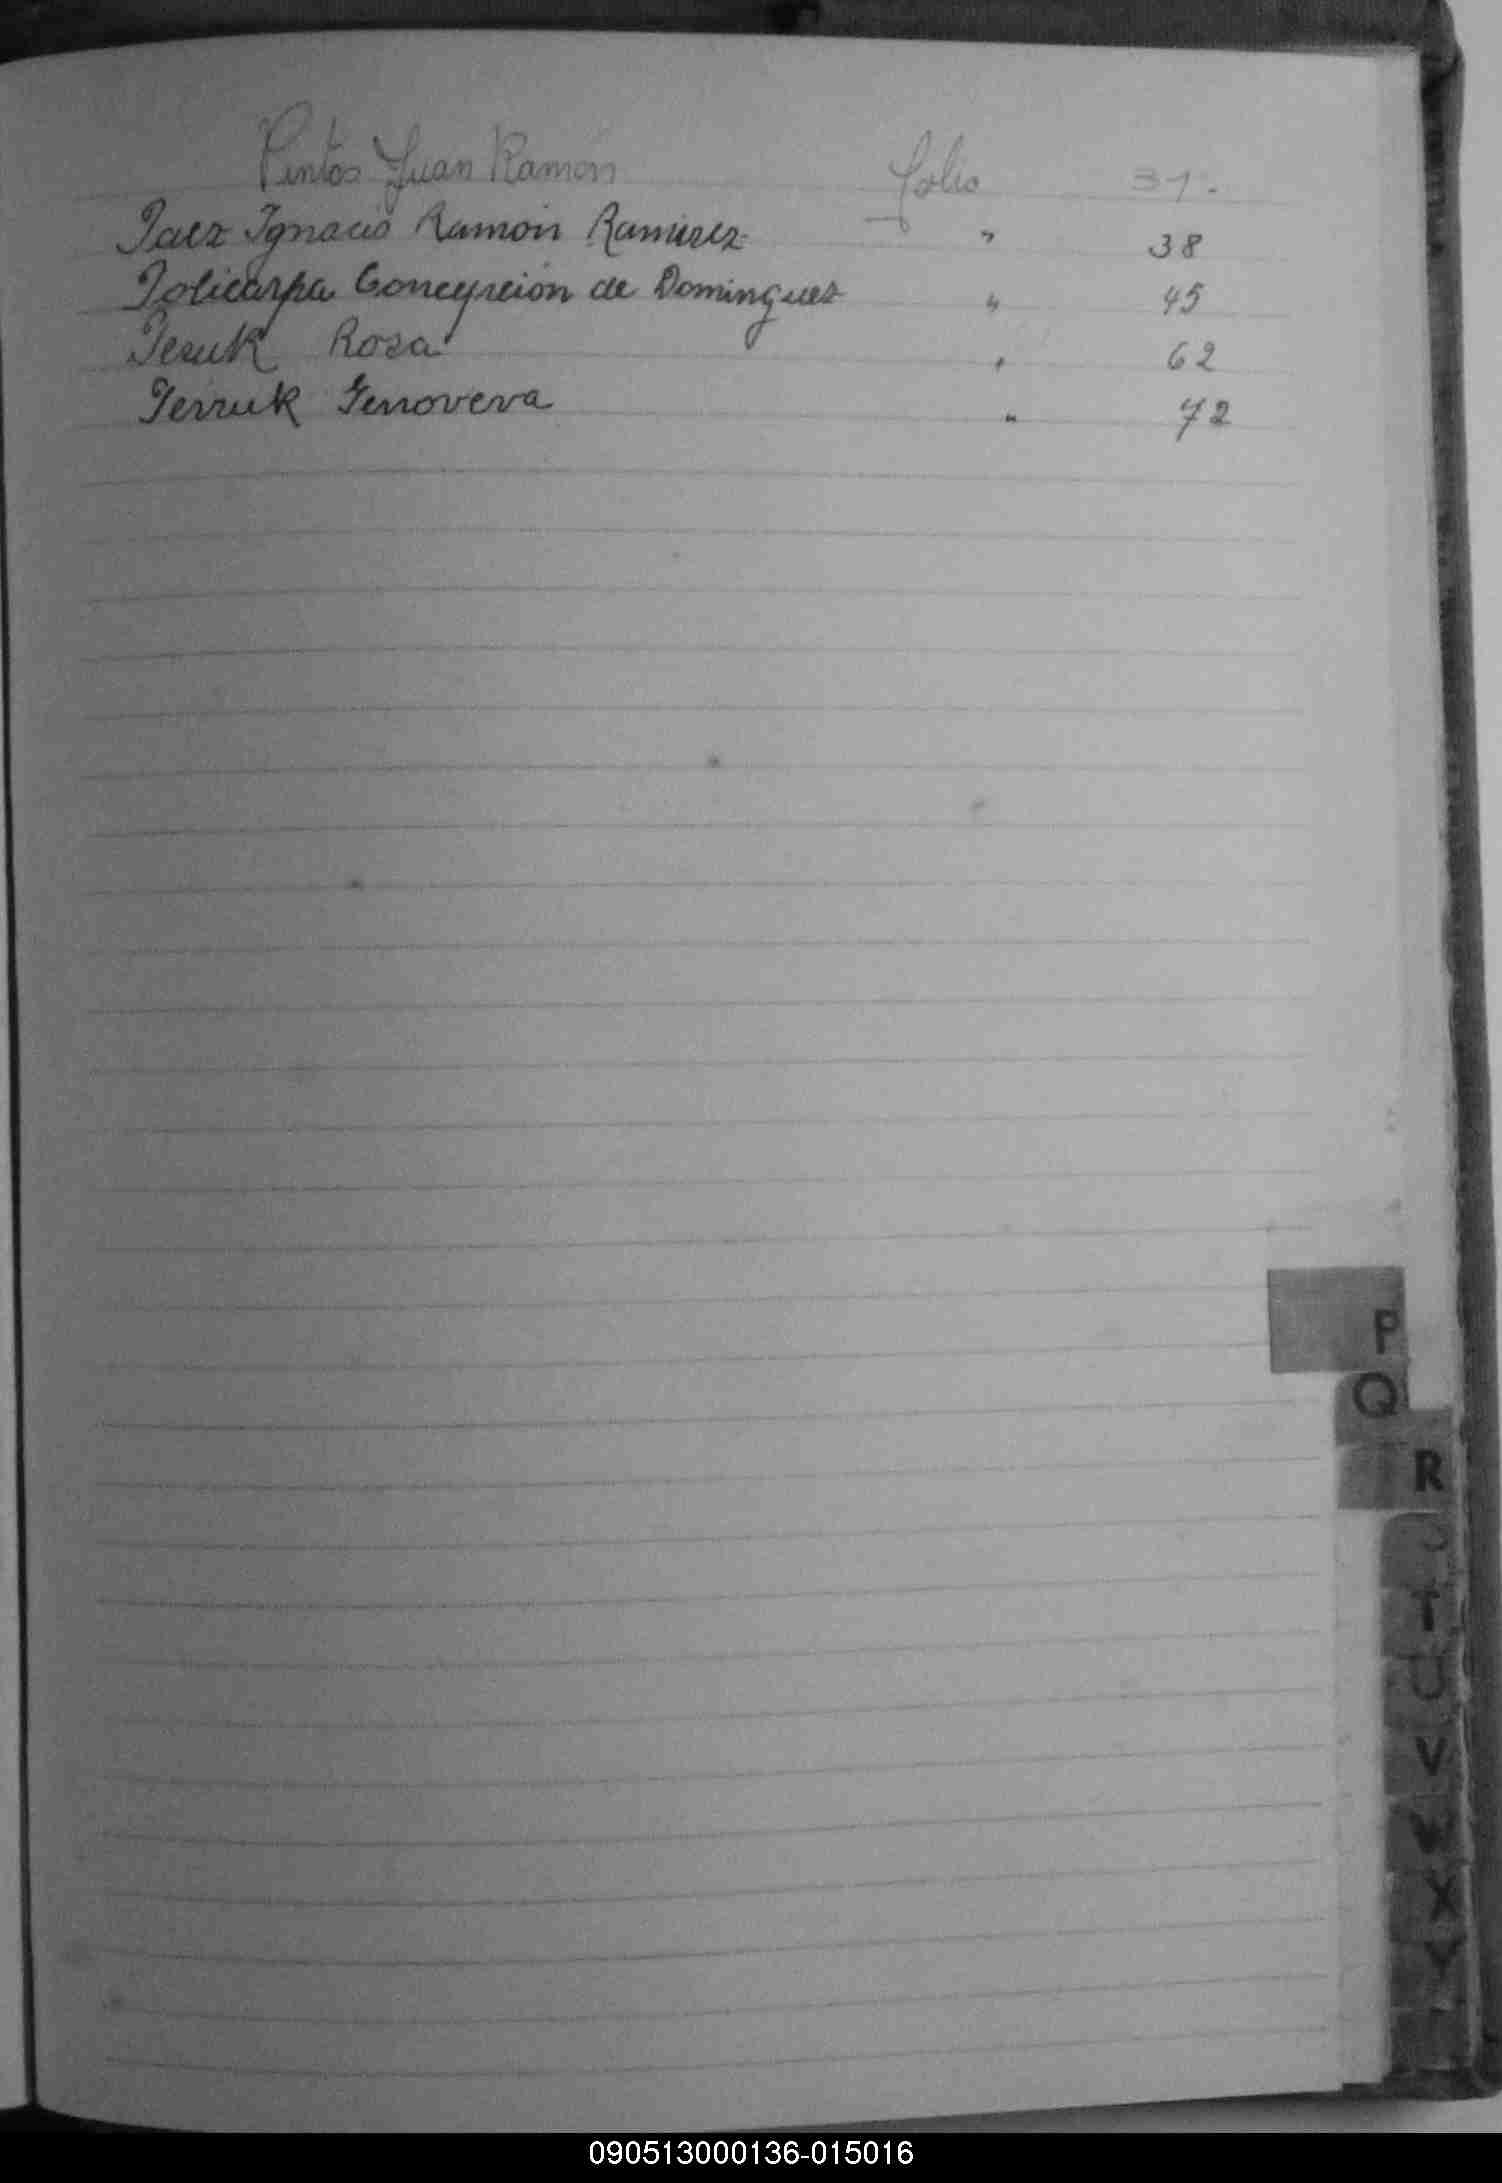 Pintos Juan Ramón folio 31.
Paez Ignacio Ramón Ramirez " 38
Policarpa Concepción de Dominguez " 45
Peruk Rosa " 62
Perruk Genoveva " 72
P
Q
R
S
T
U
V
W
X
Y
090513000136-015016